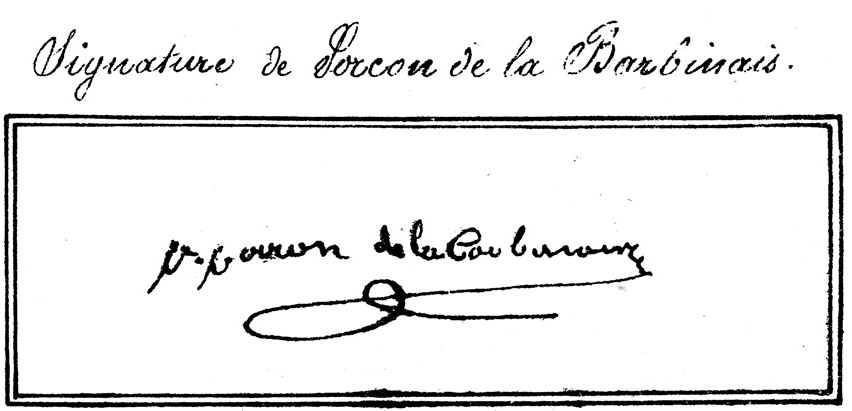 Signature de Porcon de la Barbinais.
p. porcon de la barbinais